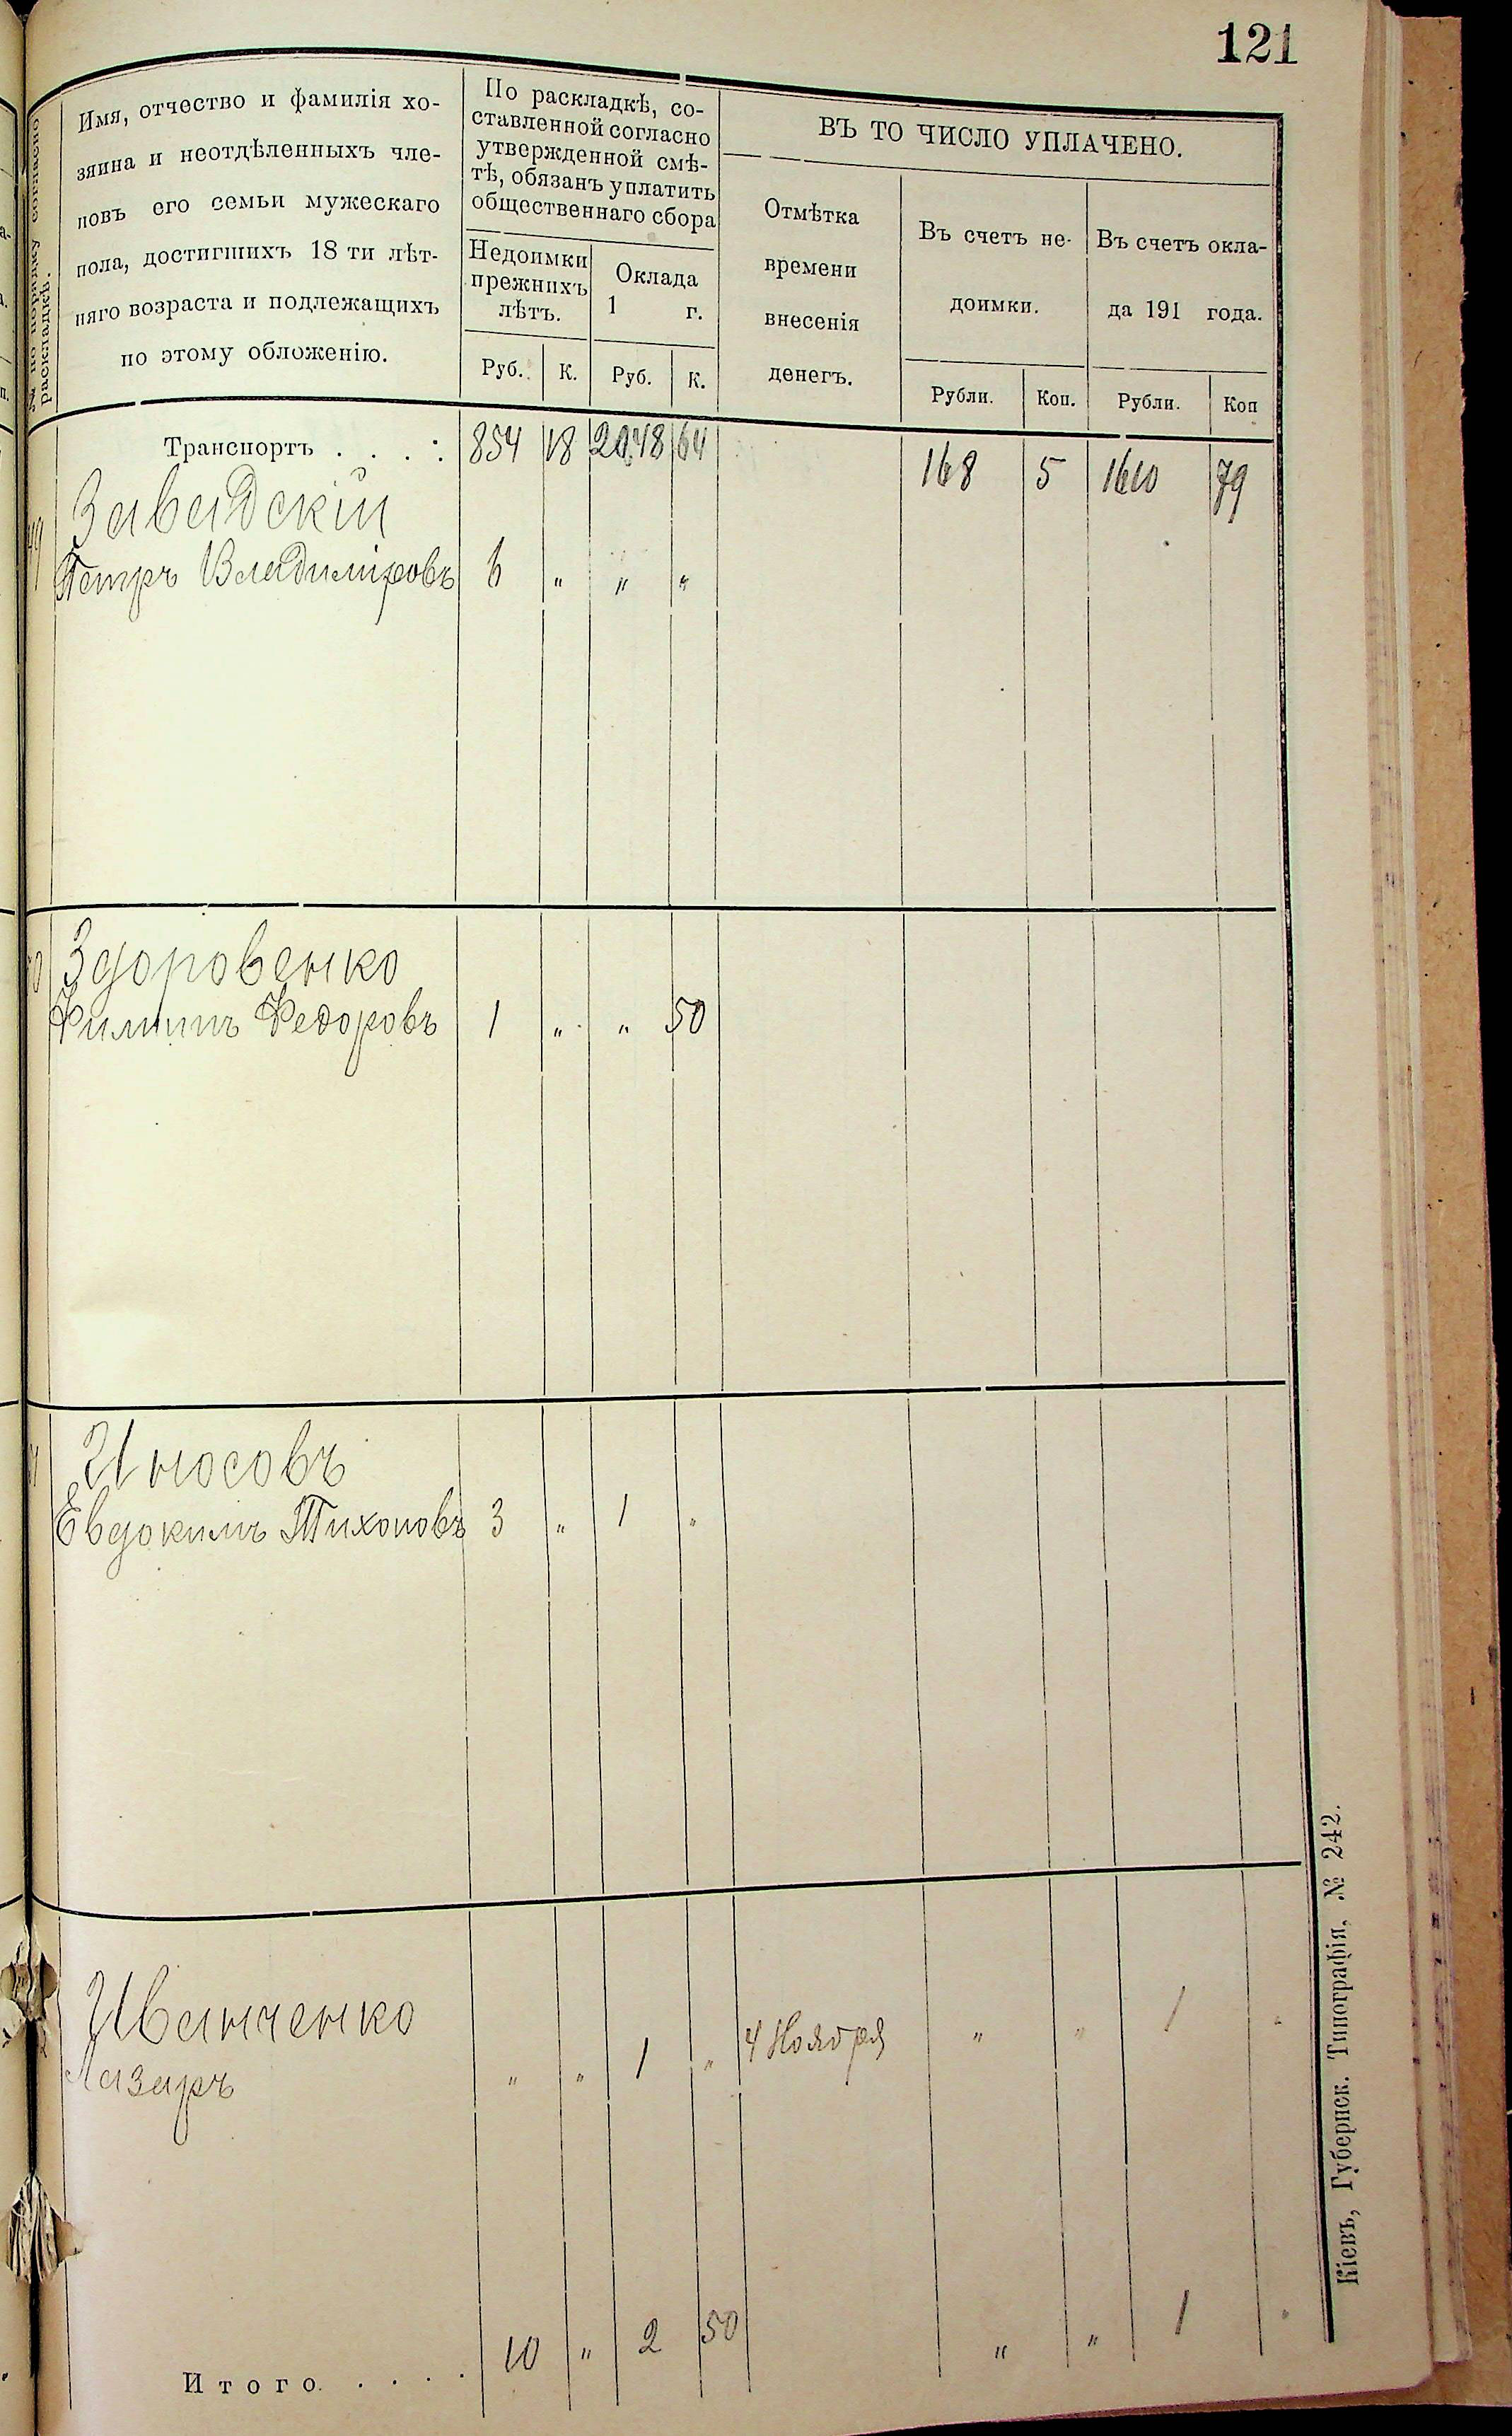 121
№ по порядку согласно
раскладкѣ.
Имя, отчество и фамилія хо-
зяина и неотдѣленныхъ чле-
новъ его семьи мужескаго
пола, достигшихъ 18 ти лѣт-
няго возраста и подлежащихъ
по этому обложенію.
По раскладкѣ, со-
ставленной согласно
утвержденной смѣ-
тѣ, обязанъ уплатить
общественнаго сбора
Недоимки
прежнихъ
лѣтъ.
Оклада
1 г.
Руб. К. Руб. К.
ВЪ ТО ЧИСЛО УПЛАЧЕНО.
Отмѣтка
времени
внесенія
денегъ.
Въ счетъ не-
доимки.
Въ счетъ окла-
да 191 года.
Рубли. Коп. Рубли. Коп
Транспортъ . . . . 854 18 2048 64 168 5 1610 79
Завадскій
Петръ Владиміровъ 6 " " "
Здоровенко
Филиппъ Федоровъ 1 " " 50
Иносовъ
Евдокимъ Тихоновъ 3 " 1 "
Иванченко
Лазарь " " 1 " 4 Ноября " " 1 "
Итого. . . . . 10 " 2 50 " " 1 "
Кіевъ, Губернск. Типографія, № 242.